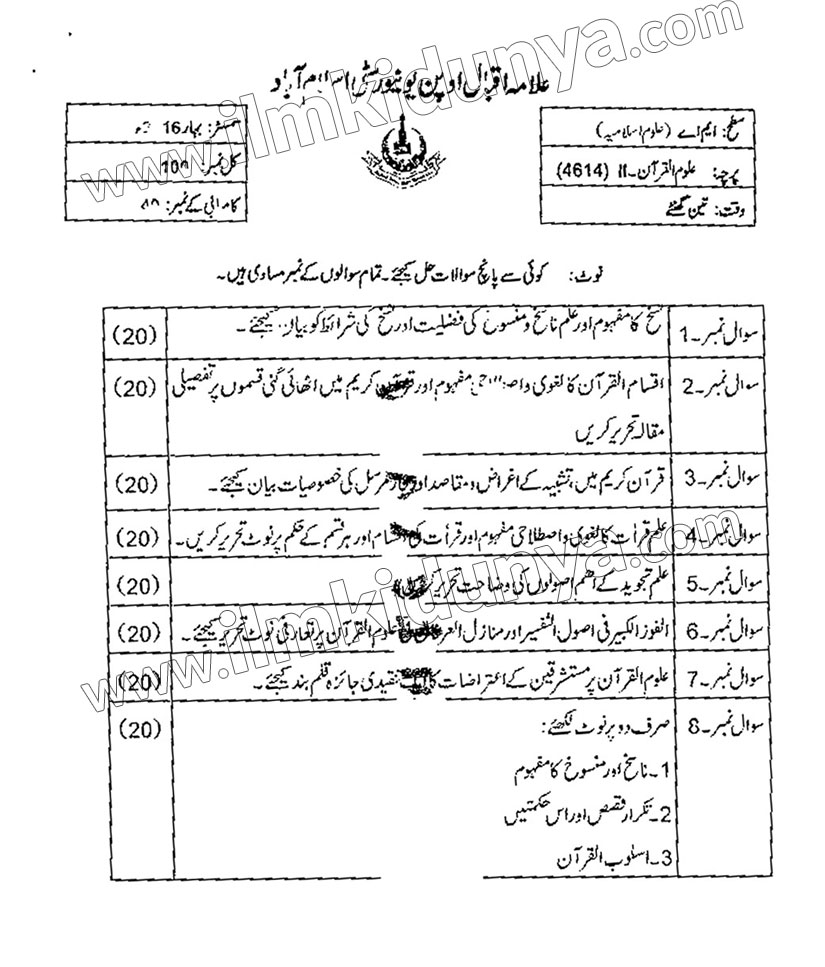 www.ilmkidunya.com
علامہ اقبال اوپن یونیورسٹی اسلام آباد
سطح: ایم اے (علوم اسلامیہ)
پرچہ: علوم القرآن۔II (4614)
وقت: تین گھنٹے
سمسٹر: بہار 16
کل نمبر: 100
کامیابی کے نمبر: 40
نوٹ: کوئی سے پانچ سوالات حل کیجئے۔ تمام سوالوں کے نمبر مساوی ہیں۔
سوال نمبر۔1 نسخ کا مفہوم اور علم ناسخ و منسوخ کی فضلیت اور نسخ کی شرائط کو بیان کیجئے۔ (20)
سوال نمبر۔2 اقسام القرآن کا لغوی و اصطلاحی مفہوم اور قرآن کریم میں اٹھائی گئی قسموں پر تفصیلی
مقالہ تحریر کریں (20)
سوال نمبر۔3 قرآن کریم میں، تشبیہ کے اغراض و مقاصد اور مرسل کی خصوصیات بیان کیجئے۔ (20)
سوال نمبر۔4 علم قرأت کا لغوی و اصطلاحی مفہوم اور قرأت کی اقسام اور ہر قسم کے حکم پر نوٹ تحریر کریں۔ (20)
سوال نمبر۔5 علم تجوید کے اہم اصولوں کی وضاحت تحریر (20)
سوال نمبر۔6 الفوز الکبیر فی اصول التفسیر اور منازل العرفان فی علوم القرآن پر تعارفی نوٹ تحریر کیجئے۔ (20)
سوال نمبر۔7 علوم القرآن پر مستشرقین کے اعتراضات کا تنقیدی جائزہ قلم بند کیجئے۔ (20)
سوال نمبر۔8 صرف دو پر نوٹ لکھئے: (20)
1۔ناسخ اور منسوخ کا مفہوم
2۔تکرار قصص اور اس حکمتیں
3۔اسلوب القرآن
www.ilmkidunya.com